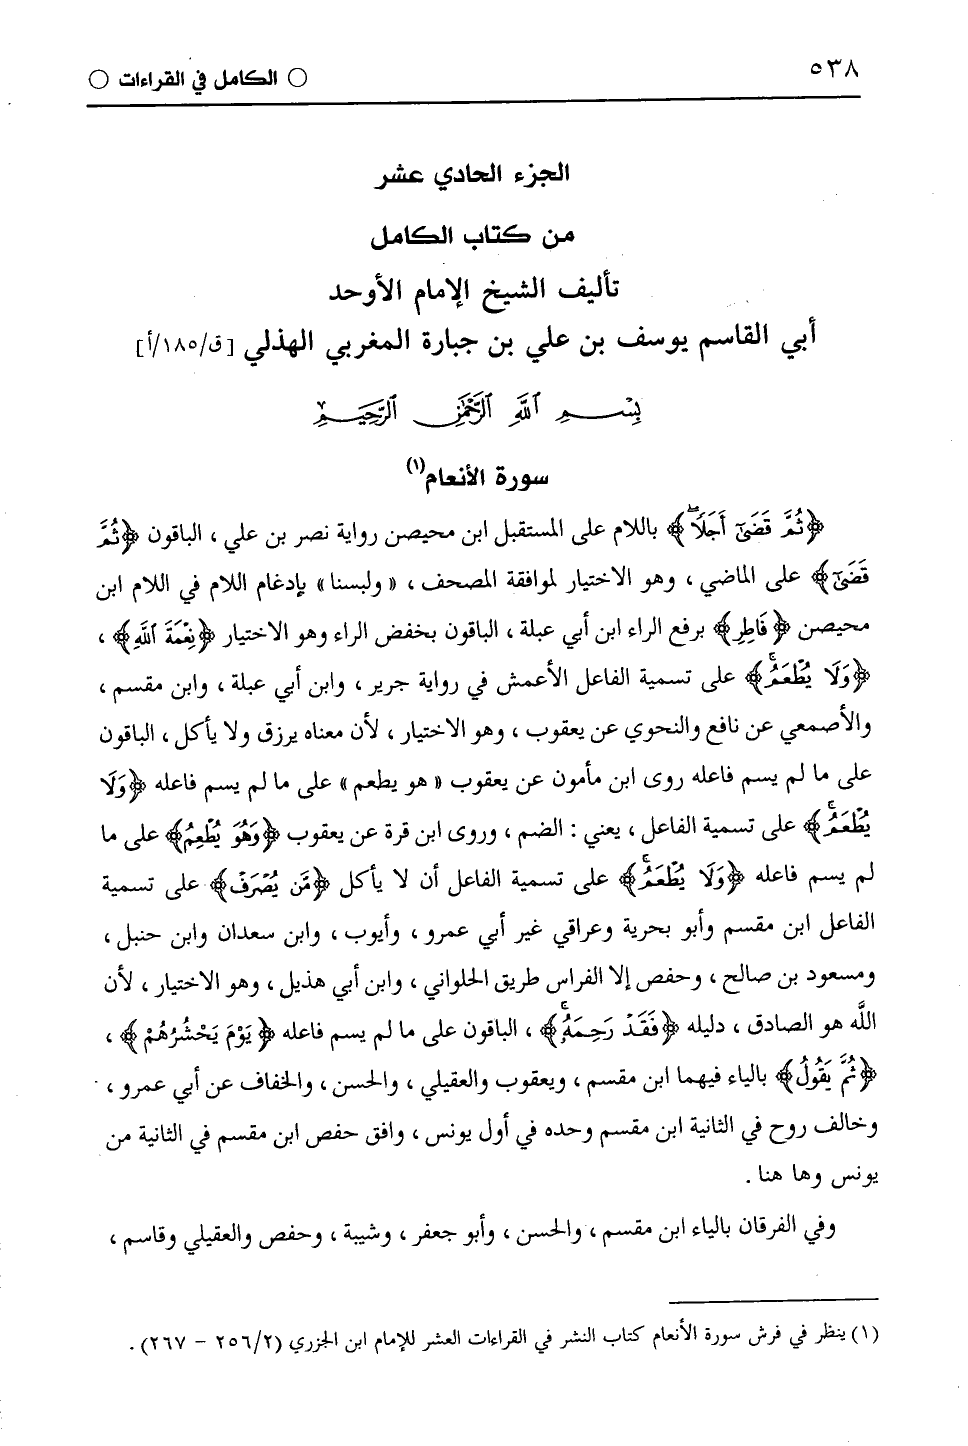 ٥٣٨
○ الكامل في القراءات ○
الجزء الحادي عشر
من كتاب الكامل
تأليف الشيخ الإمام الأوحد
أبي القاسم يوسف بن علي بن جبارة المغربي الهذلي [ق/١٨٥/أ]
بِسْمِ اللَّهِ الرَّحْمَٰنِ الرَّحِيمِ
سورة الأنعام(١)
﴿ثُمَّ قَضَىٰٓ أَجَلًاۖ﴾ باللام على المستقبل ابن محيصن رواية نصر بن علي ، الباقون ﴿ثُمَّ
قَضَىٰٓ﴾ على الماضي ، وهو الاختيار لموافقة المصحف ، « ولبسنا » بإدغام اللام في اللام ابن
محيصن ﴿فَاطِرِ﴾ برفع الراء ابن أبي عبلة ، الباقون بخفض الراء وهو الاختيار ﴿نِعْمَةَ اللَّهِ﴾ ،
﴿وَلَا يُطْعَمُۗ﴾ على تسمية الفاعل الأعمش في رواية جرير ، وابن أبي عبلة ، وابن مقسم ،
والأصمعي عن نافع والنحوي عن يعقوب ، وهو الاختيار ، لأن معناه يرزق ولا يأكل ، الباقون
على ما لم يسم فاعله روى ابن مأمون عن يعقوب « هو يطعم » على ما لم يسم فاعله ﴿وَلَا
يُطْعَمُۗ﴾ على تسمية الفاعل ، يعني : الضم ، وروى ابن قرة عن يعقوب ﴿وَهُوَ يُطْعِمُ﴾ على ما
لم يسم فاعله ﴿وَلَا يُطْعَمُۗ﴾ على تسمية الفاعل أن لا يأكل ﴿مَّن يُصْرَفْ﴾ على تسمية
الفاعل ابن مقسم وأبو بحرية وعراقي غير أبي عمرو ، وأيوب ، وابن سعدان وابن حنبل ،
ومسعود بن صالح ، وحفص إلا الفراس طريق الحلواني ، وابن أبي هذيل ، وهو الاختيار ، لأن
اللَّه هو الصادق ، دليله ﴿فَقَدْ رَحِمَهُۥۚ﴾ ، الباقون على ما لم يسم فاعله ﴿يَوْمَ يَحْشُرُهُمْ﴾ ،
﴿ثُمَّ يَقُولُ﴾ بالياء فيهما ابن مقسم ، ويعقوب والعقيلي ، والحسن ، والخفاف عن أبي عمرو ،
وخالف روح في الثانية ابن مقسم وحده في أول يونس ، وافق حفص ابن مقسم في الثانية من
يونس وها هنا .
وفي الفرقان بالياء ابن مقسم ، والحسن ، وأبو جعفر ، وشيبة ، وحفص والعقيلي وقاسم ،
(١) ينظر في فرش سورة الأنعام كتاب النشر في القراءات العشر للإمام ابن الجزري (٢/ ٢٥٦ – ٢٦٧) .